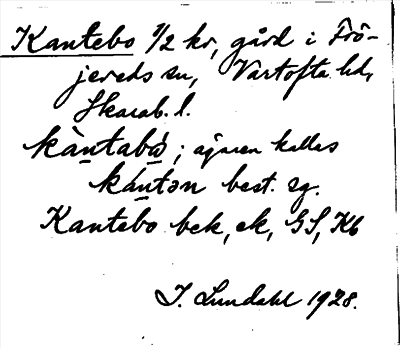 Kantebo 1/2 kr, gård i Frö-
jereds sn, Vartofta hd,
Skarab. l.
kàntabò; ägaren kallas
kánton best. sg.
Kantebo bek, ek, GS, Kb
I. Lundahl 1928.